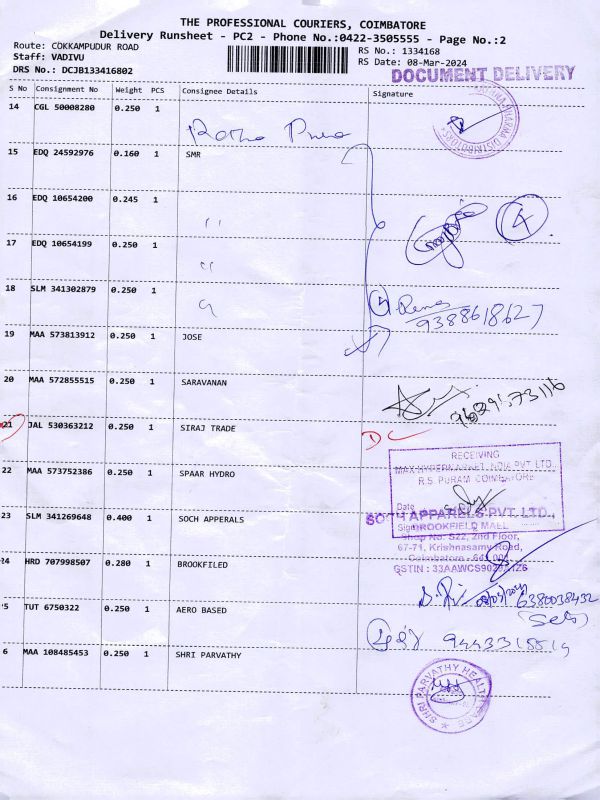 THE PROFESSIONAL COURIERS, COIMBATORE
Delivery Runsheet - PC2 - Phone No.:0422-3505555 - Page No.:2
Route: COKKAMPUDUR ROAD
RS No.: 1334168
Staff: VADIVU
RS Date: 08-Mar-2024
DRS No.: DCJB133416802
DOCUMENT DELIVERY
S No Consignment No Weight PCS Consignee Details Signature
14 CGL 50008280 0.250 1
15 EDQ 24592976 0.160 1 SMR
16 EDQ 10654200 0.245 1 ,,
4
17 EDQ 10654199 0.250 1 ,,
18 SLM 341302879 0.250 1 ,,
9388618627
19 MAA 573813912 0.250 1 JOSE
20 MAA 572855515 0.250 1 SARAVANAN
21 JAL 530363212 0.250 1 SIRAJ TRADE
DC
RECEIVING
MAX HYPERMARKET INDIA PVT LTD.,
R.S. PURAM, COIMBATORE
22 MAA 573752386 0.250 1 SPAAR HYDRO
Date
23 SLM 341269648 0.400 1 SOCH APPERALS
SOCH APPARELS PVT. LTD.,
Sign BROOKFIELD MALL
Shop No: S22, 2nd Floor,
67-71, Krishnasamy Road,
24 HRD 707998507 0.280 1 BROOKFILED
08/03/2024 6380038432
5 TUT 6750322 0.250 1 AERO BASED
6 MAA 108485453 0.250 1 SHRI PARVATHY
SHRI PARVATHY HEALTH CARE